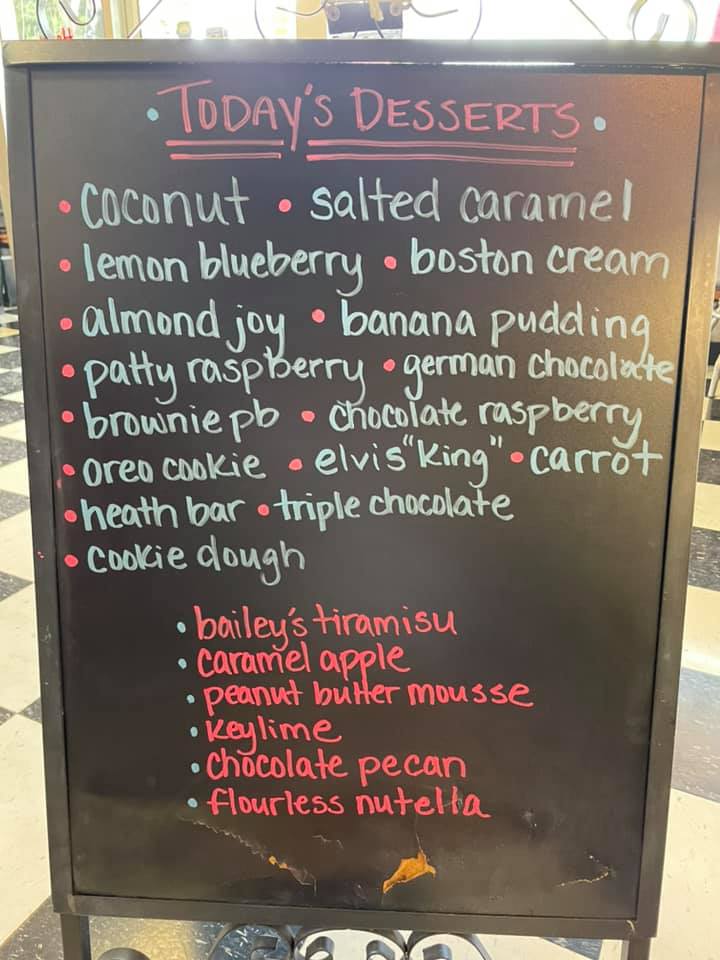 • TODAY'S DESSERTS •
• coconut • salted caramel
• lemon blueberry • boston cream
• almond joy • banana pudding
• patty raspberry • german chocolate
• brownie pb • chocolate raspberry
• oreo cookie • elvis "king" • carrot
• heath bar • triple chocolate
• cookie dough
• bailey's tiramisu
• caramel apple
• peanut butter mousse
• keylime
• chocolate pecan
• flourless nutella